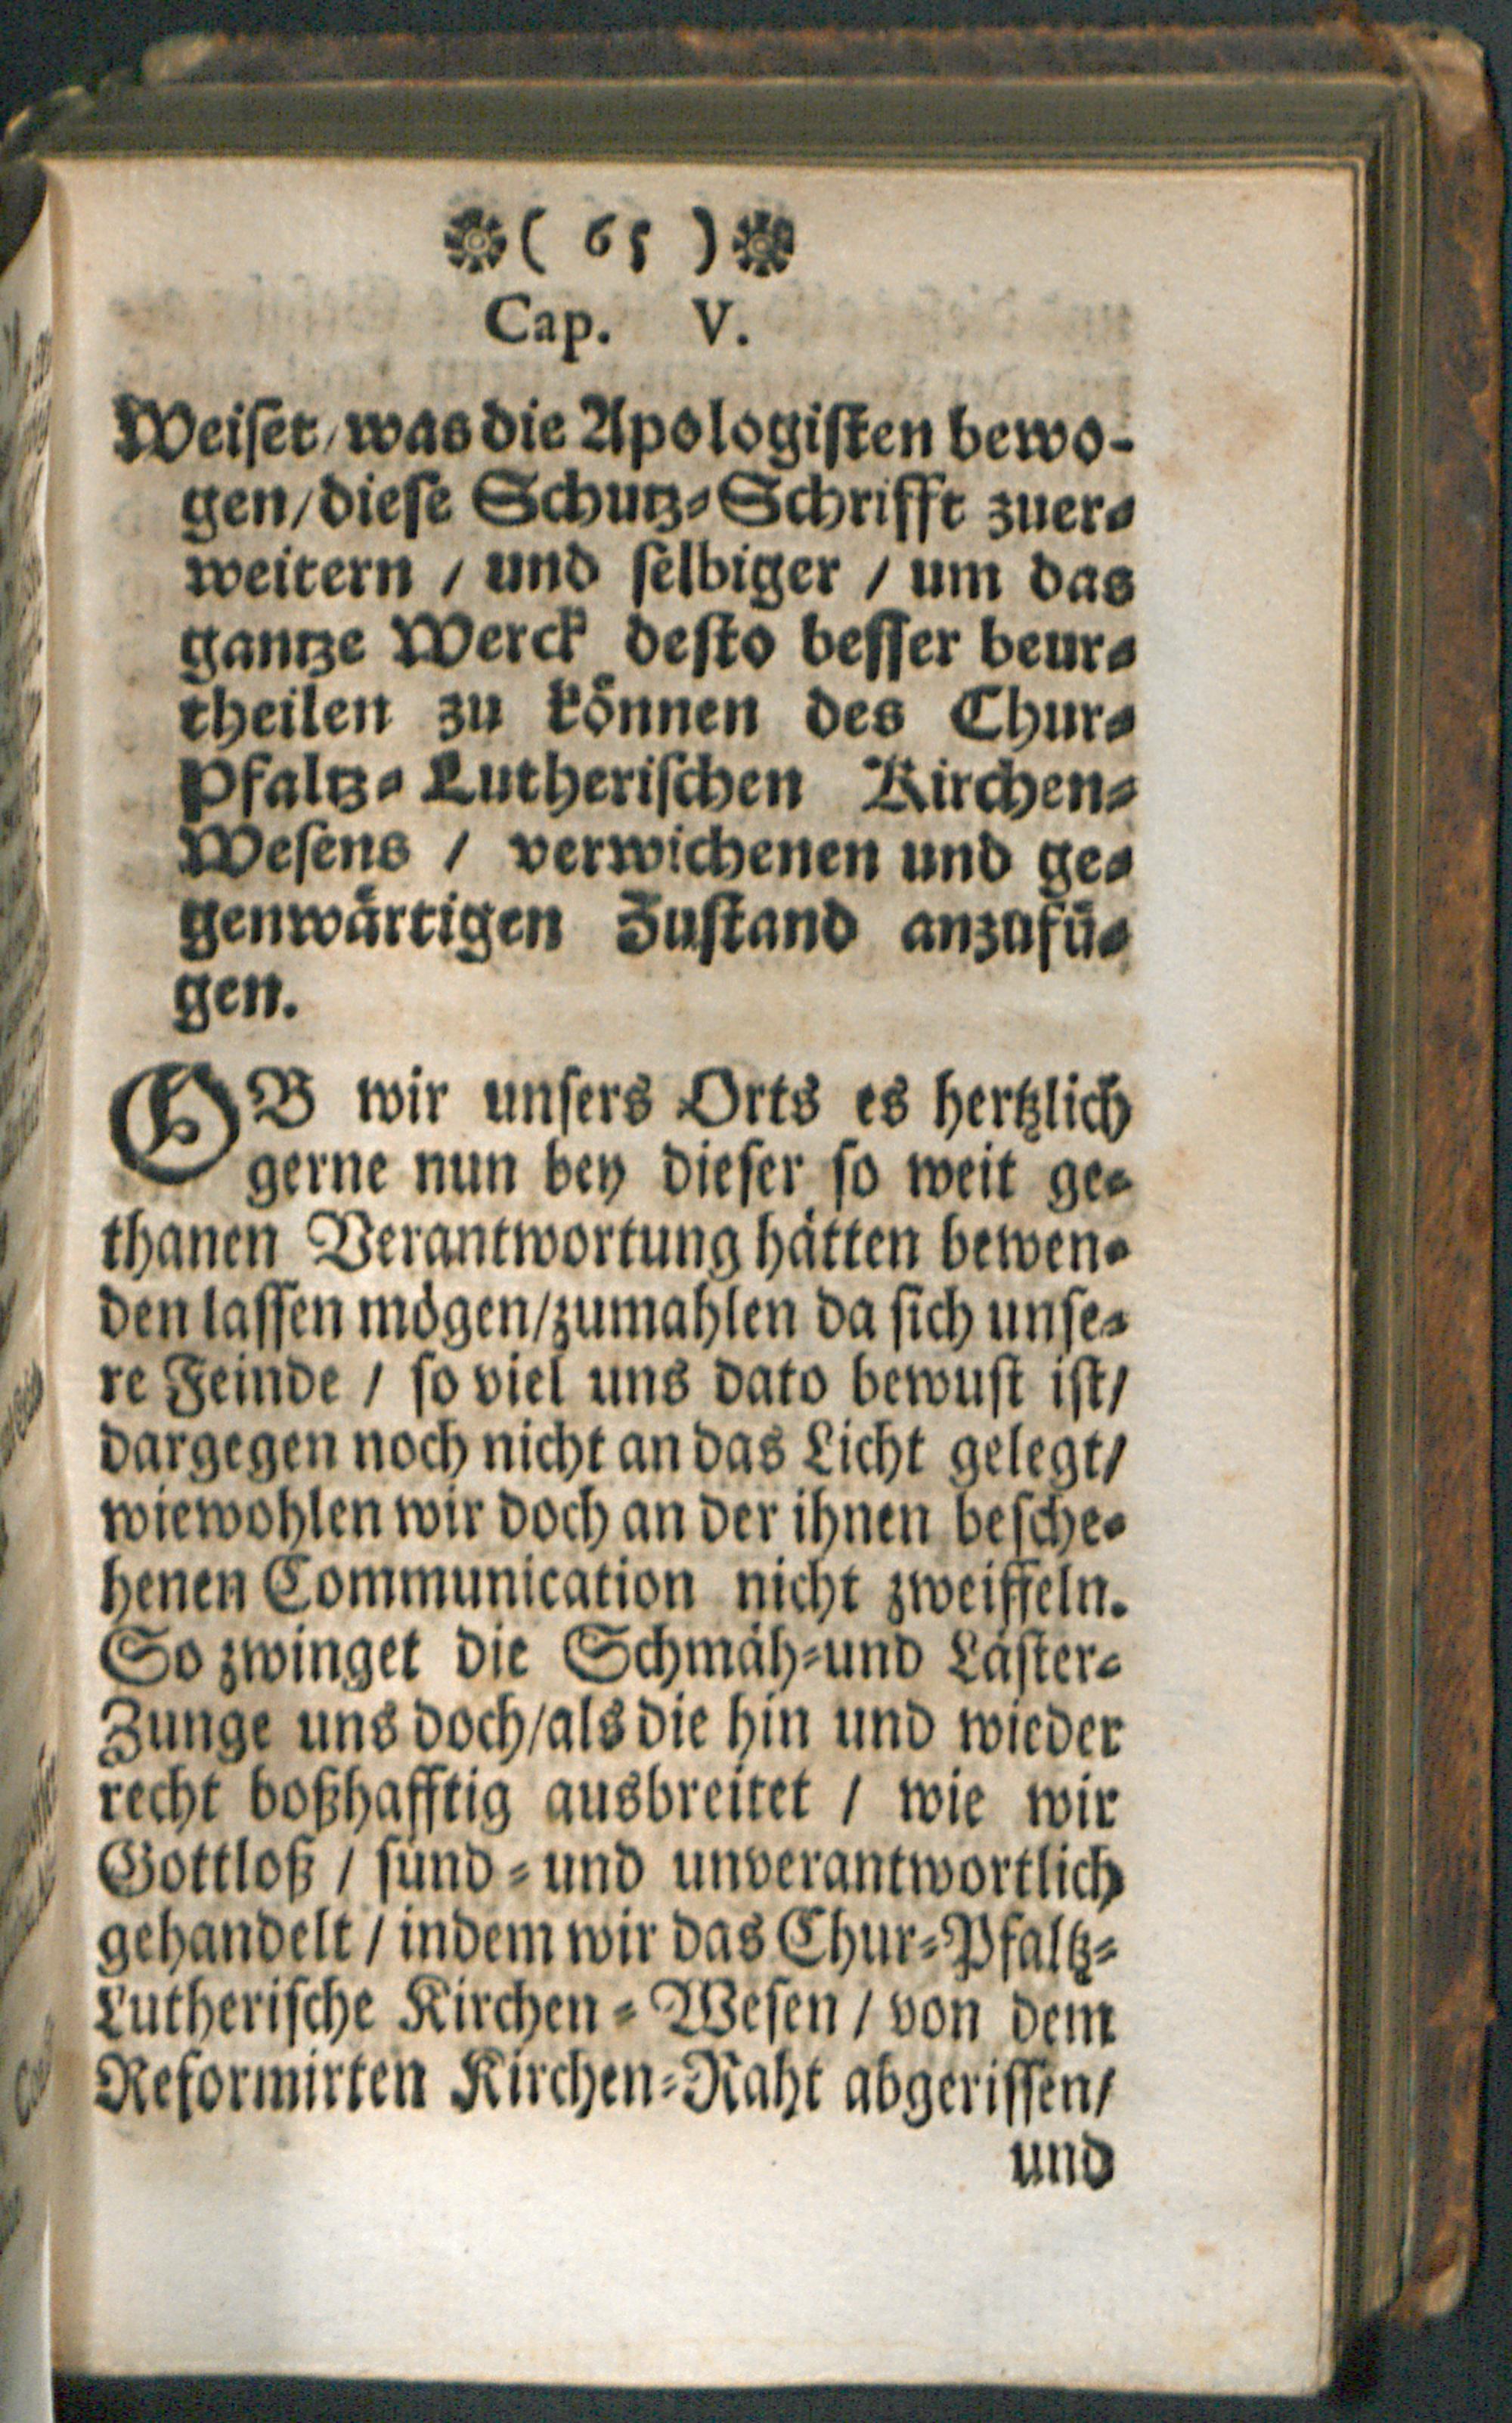 ( 65 )
Cap. V.
Weiset/ was die Apologisten bewo-
gen/ diese Schutz-Schrifft zuer-
weitern / und selbiger / um das
gantze Werck desto besser beur-
theilen zu können des Chur-
Pfaltz-Lutherischen Kirchen-
Wesens / verwichenen und ge-
genwärtigen Zustand anzufü-
gen.
OB wir unsers Orts es hertzlich
gerne nun bey dieser so weit ge-
thanen Verantwortung hätten bewen-
den lassen mögen/zumahlen da sich unse-
re Feinde / so viel uns dato bewust ist/
dargegen noch nicht an das Licht gelegt/
wiewohlen wir doch an der ihnen besche-
henen Communication nicht zweiffeln.
So zwinget die Schmäh-und Läster-
Zunge uns doch/als die hin und wieder
recht boßhafftig ausbreitet / wie wir
Gottloß / sünd-und unverantwortlich
gehandelt / indem wir das Chur-Pfaltz-
Lutherische Kirchen-Wesen / von dem
Reformirten Kirchen-Raht abgerissen/
und